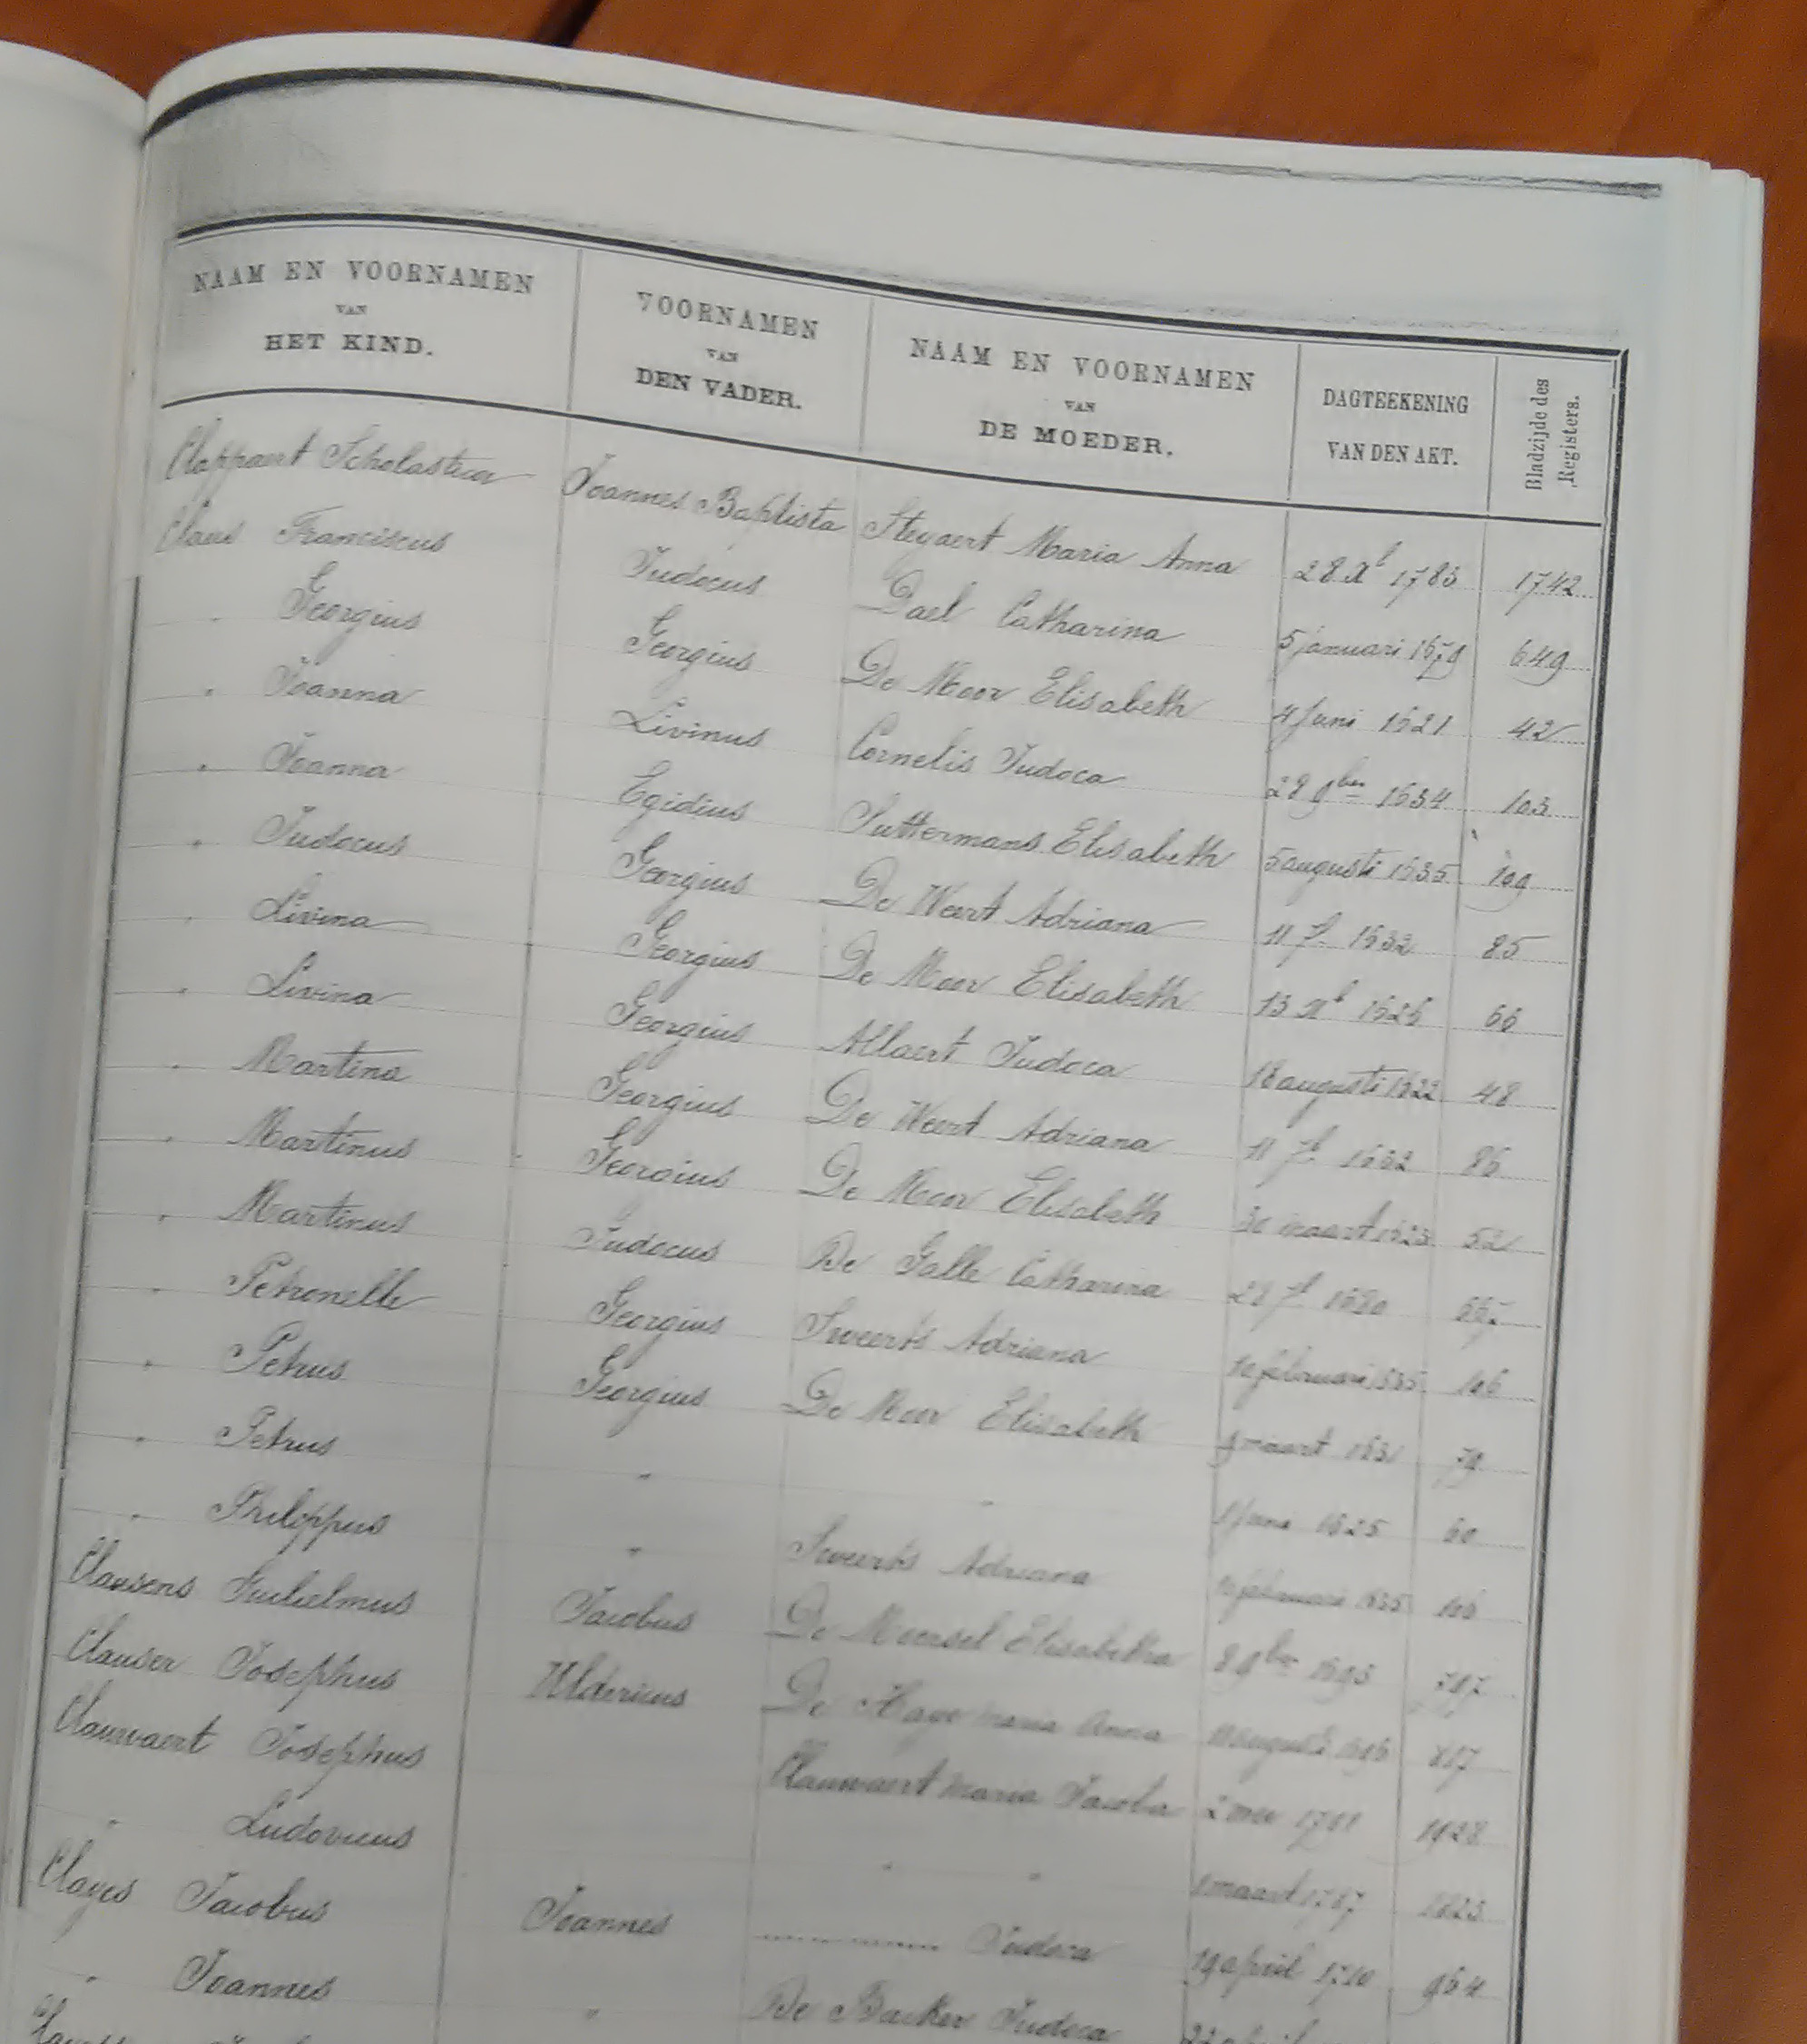 NAAM EN VOORNAMEN VAN HET KIND. VOORNAMEN VAN DEN VADER. NAAM EN VOORNAMEN VAN DE MOEDER. DAGTEEKENING VAN DEN AKT. Bladzijde des Registers.
Clappaert Scholastica Joannes Baptista Steyaert Maria Anna 28 Xb 1783 1742
Claus Franciscus Judocus Dael Catharina 5 januari 1679 649
" Georgius Georgius De Moor Elisabeth 4 Juni 1621 42
" Joanna Livinus Cornelis Judoca 28 9ber 1634 103
" Joanna Egidius Suttermans Elisabeth 5 augusti 1635 109
" Judocus Georgius De Weert Adriana 11 1632 85
" Livina Georgius De Moor Elisabeth 13 Xb 1626 66
" Livina Georgius Allaert Judoca 18 augusti 1622 48
" Martina Georgius De Weert Adriana 11 1632 86
" Martinus Georgius De Moor Elisabeth 30 maart 1623 52
" Martinus Judocus De Galle Catharina 28 1680
" Petronella Georgius Sweerts Adriana 10 februari 1635 106
" Petrus Georgius De Moor Elisabeth 9 maart 1631 79
" Petrus " " 1 Juni 1625 60
" Philippus " Sweerts Adriana 10 februari 1635 106
Clausens Guilielmus Jacobus De Meersel Elisabetha 8 9ber 1693 787
Clauser Josephus Uldericus De Haye Maria Anna augusti 1696 817
Clauwaert Josephus Clauwaert Maria Jacoba 2 mei 1791 1928
" Ludovicus " " 1 maart 1787 1823
Clayes Jacobus Joannes .................. Judoca 19 april 1710 964
" Joannes " De Backer Judoca